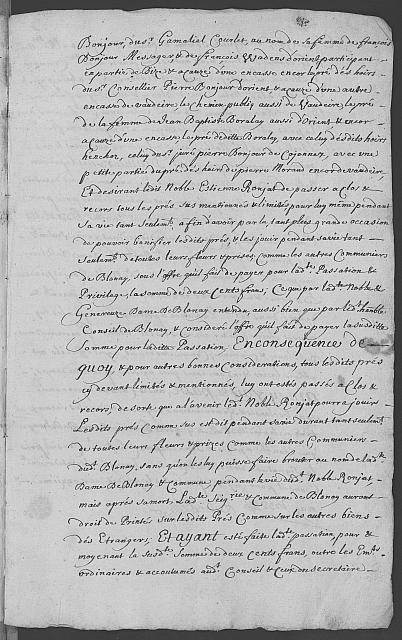 Bonjour, du Sr. Gamaliel Courlet, au nom de sa femme de francois
Bonjour Messager & de francois Wadens d'orient participant
en partie de Bize & a cause d'une encasse encor le pré des hoirs
du Sr. Conseillier Pierre Bonjour d'orient & a cause d'une autre
encasse de vaudeire le Chemin public aussi de Vaudeire le pré
de la femme de Jean Baptiste Boralay aussi d'orient & encor
a cause d'une encasse le pré de ditte Boralay, avec celuy desdits hoirs
celuy du Sr. juré pierre Bonjour de Cojonnex, avec une
petite partie du pré des hoirs de pierre Morand encor de vaudeire
Et desirant ledit Noble Estienne Ronjat de passer a clos &
records tous les prés sus mentionnés & limités pour luy même pendant
sa vie tant seulemt. afin d'avoir par la, tant plus grande occasion
de pouvoir benifier lesdits prés, & les jouir pendant sa vie tant
seulemt. de toutes leurs fleurs & prises comme les autres Communiers
de Blonay, sous l'offre qu'il fait de payer pour ladte. Passation &
Privilege, la somme de deux Cents francs, Ce que par ladte. Noble &
Genereuse Dame de Blonay entendu, aussi bien que par led. honble.
Conseil de Blonay, & consideré l'offre qu'il fait de payer la susditte
Somme pour laditte Passation, En consequence de
quoy, & pour autres bonnes considerations, tous lesdits prés
cy devant limités & mentionnés, luy ont estés passés a Clos &
records, de sorte qu'a l'avenir led. Noble Ronjat pourra jouir
Lesdits prés comme sus est dit pendant sa vie durant tant seulemt.
de toutes leurs fleurs & prizes comme les autres Communiers
dud. Blonay, sans qu'on les luy puisse faire brouter au nom de ladte.
Dame de Blonay & Commune pendant la vie dud. Noble Ronjat
mais aprés sa mort, Ladte. Seigrie. & Commune de Blonay auront
droit de Printés sur lesdits Prés Comme sur les autres biens
dés Etrangers; Et ayant esté faite ladte. passation, pour &
moyenant la susdte. Somme de deux cents francs, outre les Emts.
ordinaires & accoutumés aud. Conseil & Ceux du secretaire